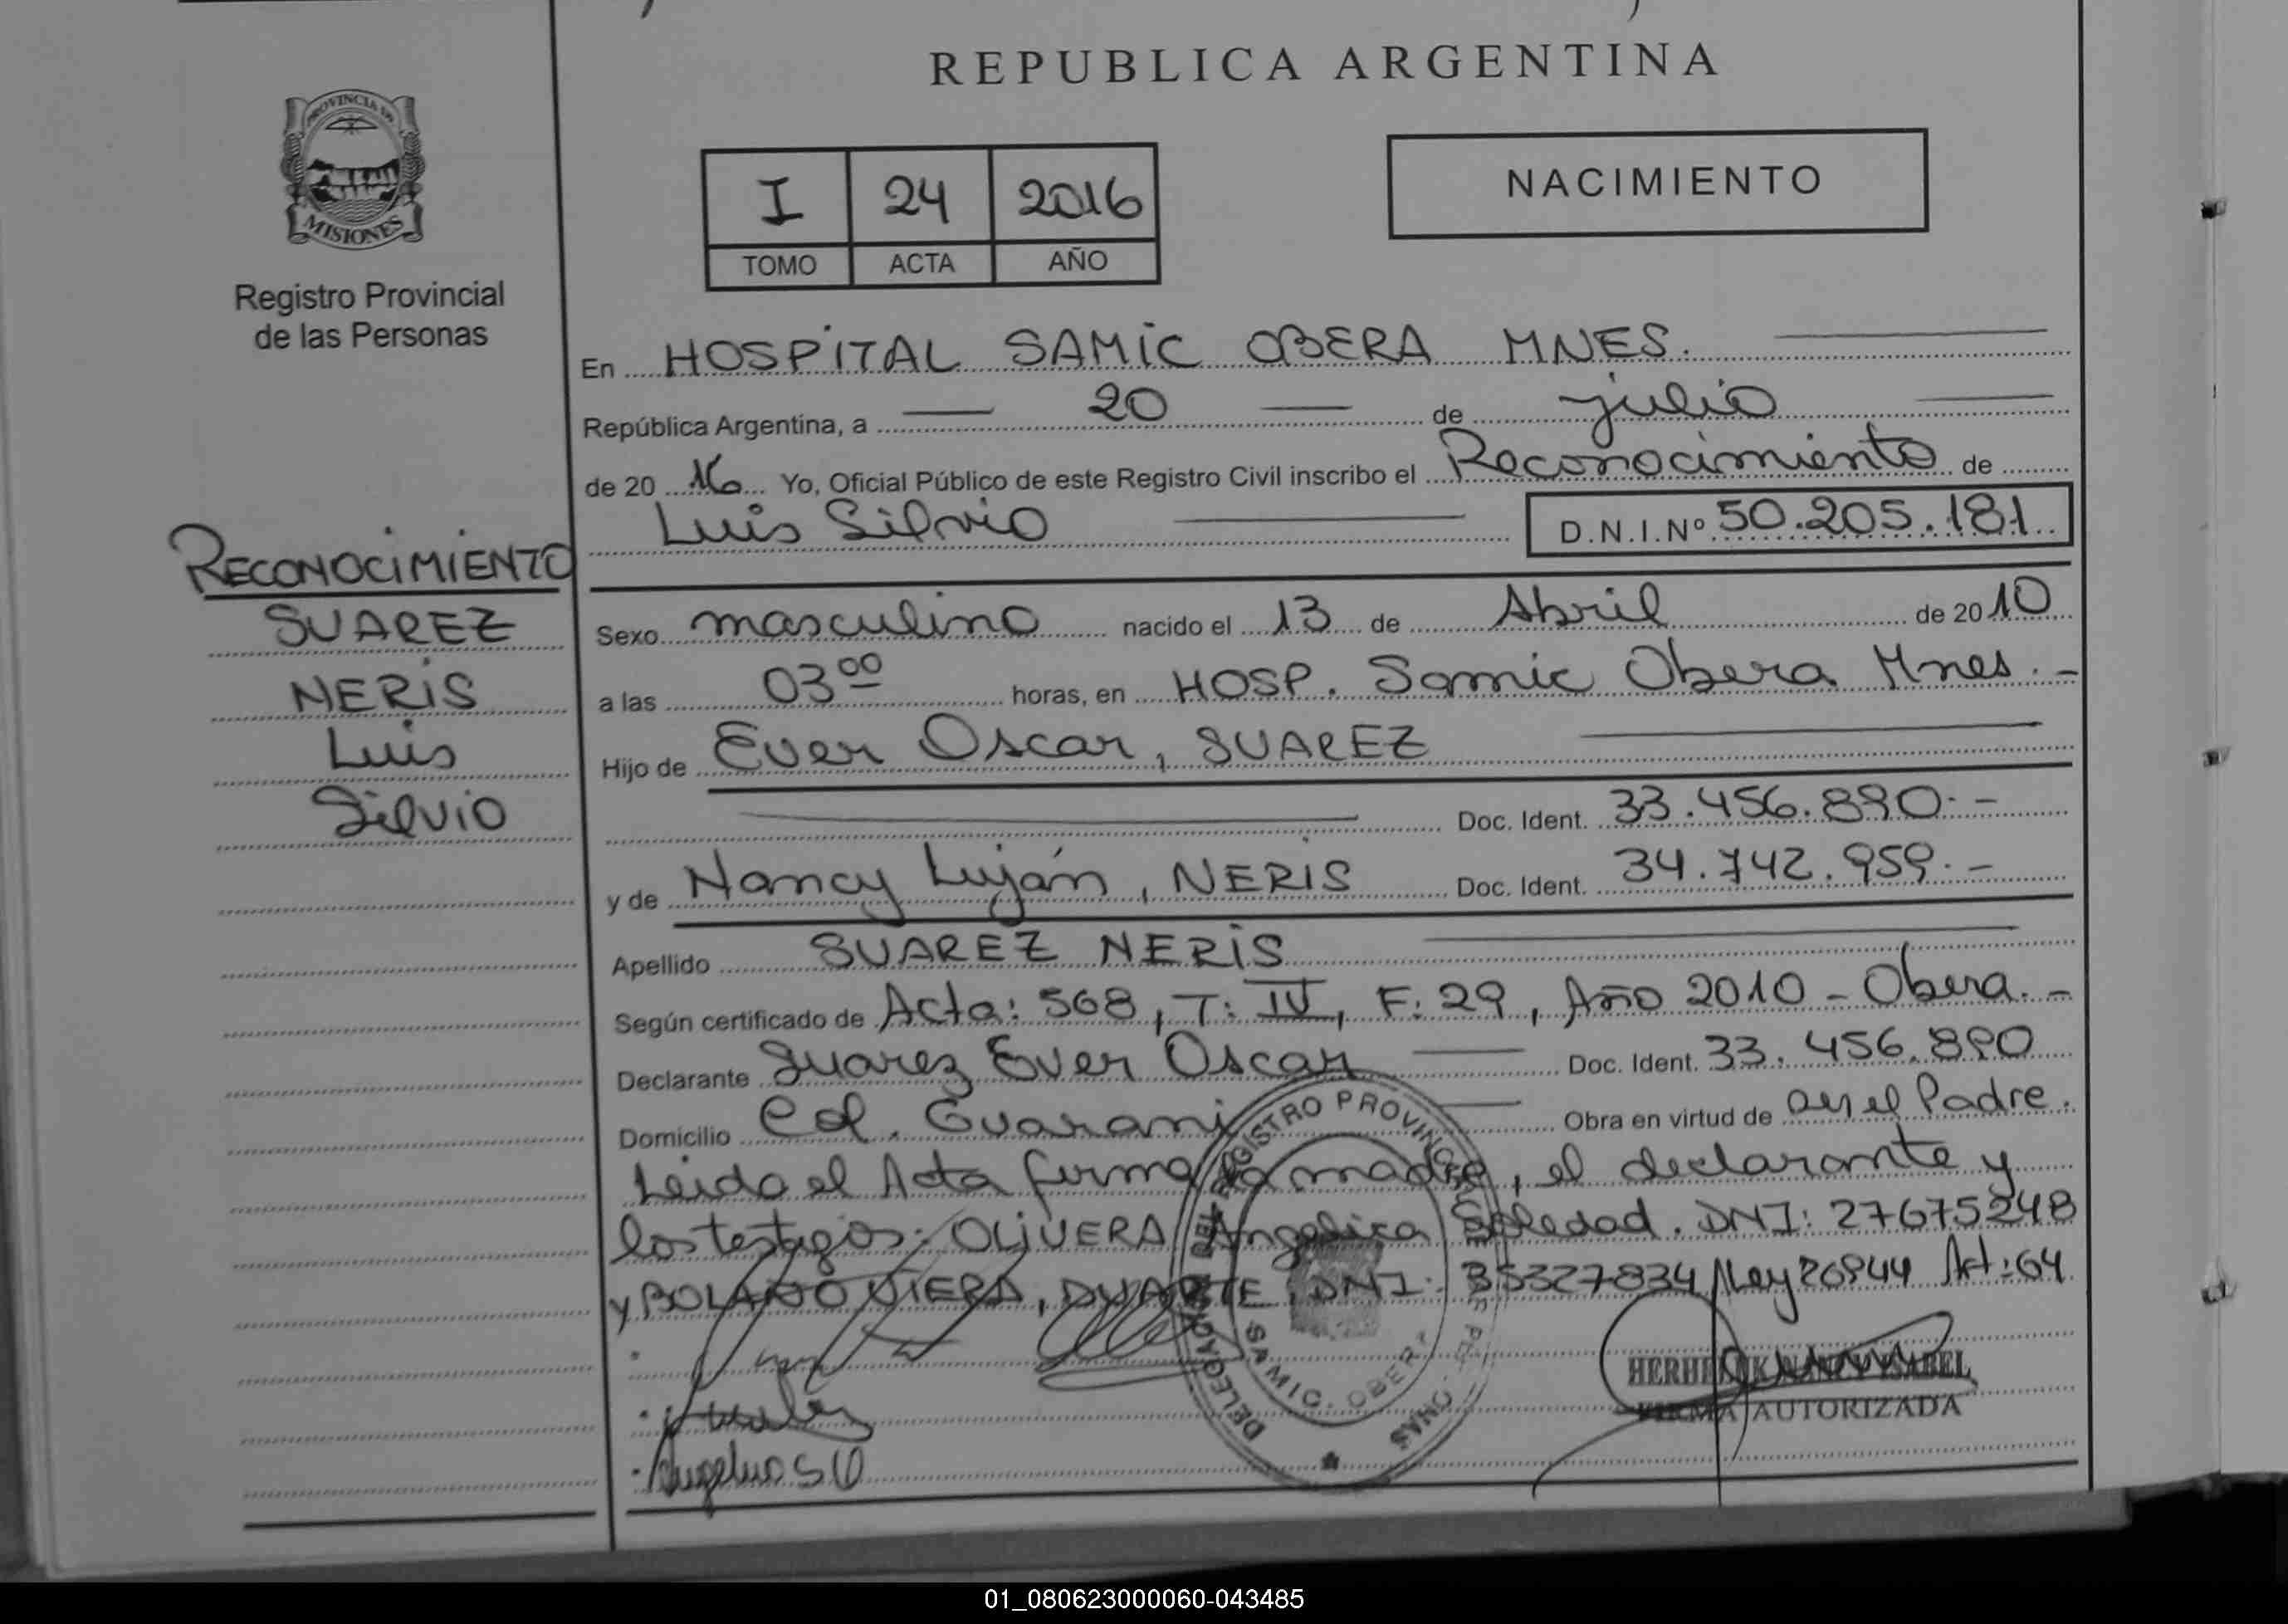 REPUBLICA ARGENTINA
PROVINCIA DE
MISIONES
Registro Provincial
de las Personas
I 24 2016
TOMO ACTA AÑO
NACIMIENTO
RECONOCIMIENTO
SUAREZ
NERIS
Luis
Silvio
En HOSPITAL SAMIC OBERA MNES.
República Argentina, a 20 de julio
de 20 16 Yo, Oficial Público de este Registro Civil inscribo el Reconocimiento de
Luis Silvio D.N.I.Nº 50.205.181
Sexo masculino nacido el 13 de Abril de 2010
a las 03⁰⁰ horas, en HOSP. Samic Obera Mnes. -
Hijo de Ever Oscar, SUAREZ
Doc. Ident. 33.456.890.-
y de Nancy Luján, NERIS Doc. Ident. 34.742.959.-
Apellido SUAREZ NERIS
Según certificado de Acta: 568, T: IV, F: 29, Año 2010 - Obera. -
Declarante Suarez Ever Oscar Doc. Ident. 33.456.890
Domicilio Col. Guarani Obra en virtud de ser el Padre.
Leido el Acta firma la madre, el declarante y
los testigos: OLIVERA Angelica Soledad. DNI: 27675248
y BOLAÑO VIERA, DUARTE, DNI: 35327834 Ley 26944 Art: 64
DELEGACION DEL REGISTRO PROVINCIAL DE PERSONAS
SAMIC. OBERA
NANCY YSABEL
FIRMA AUTORIZADA
01_080623000060-043485